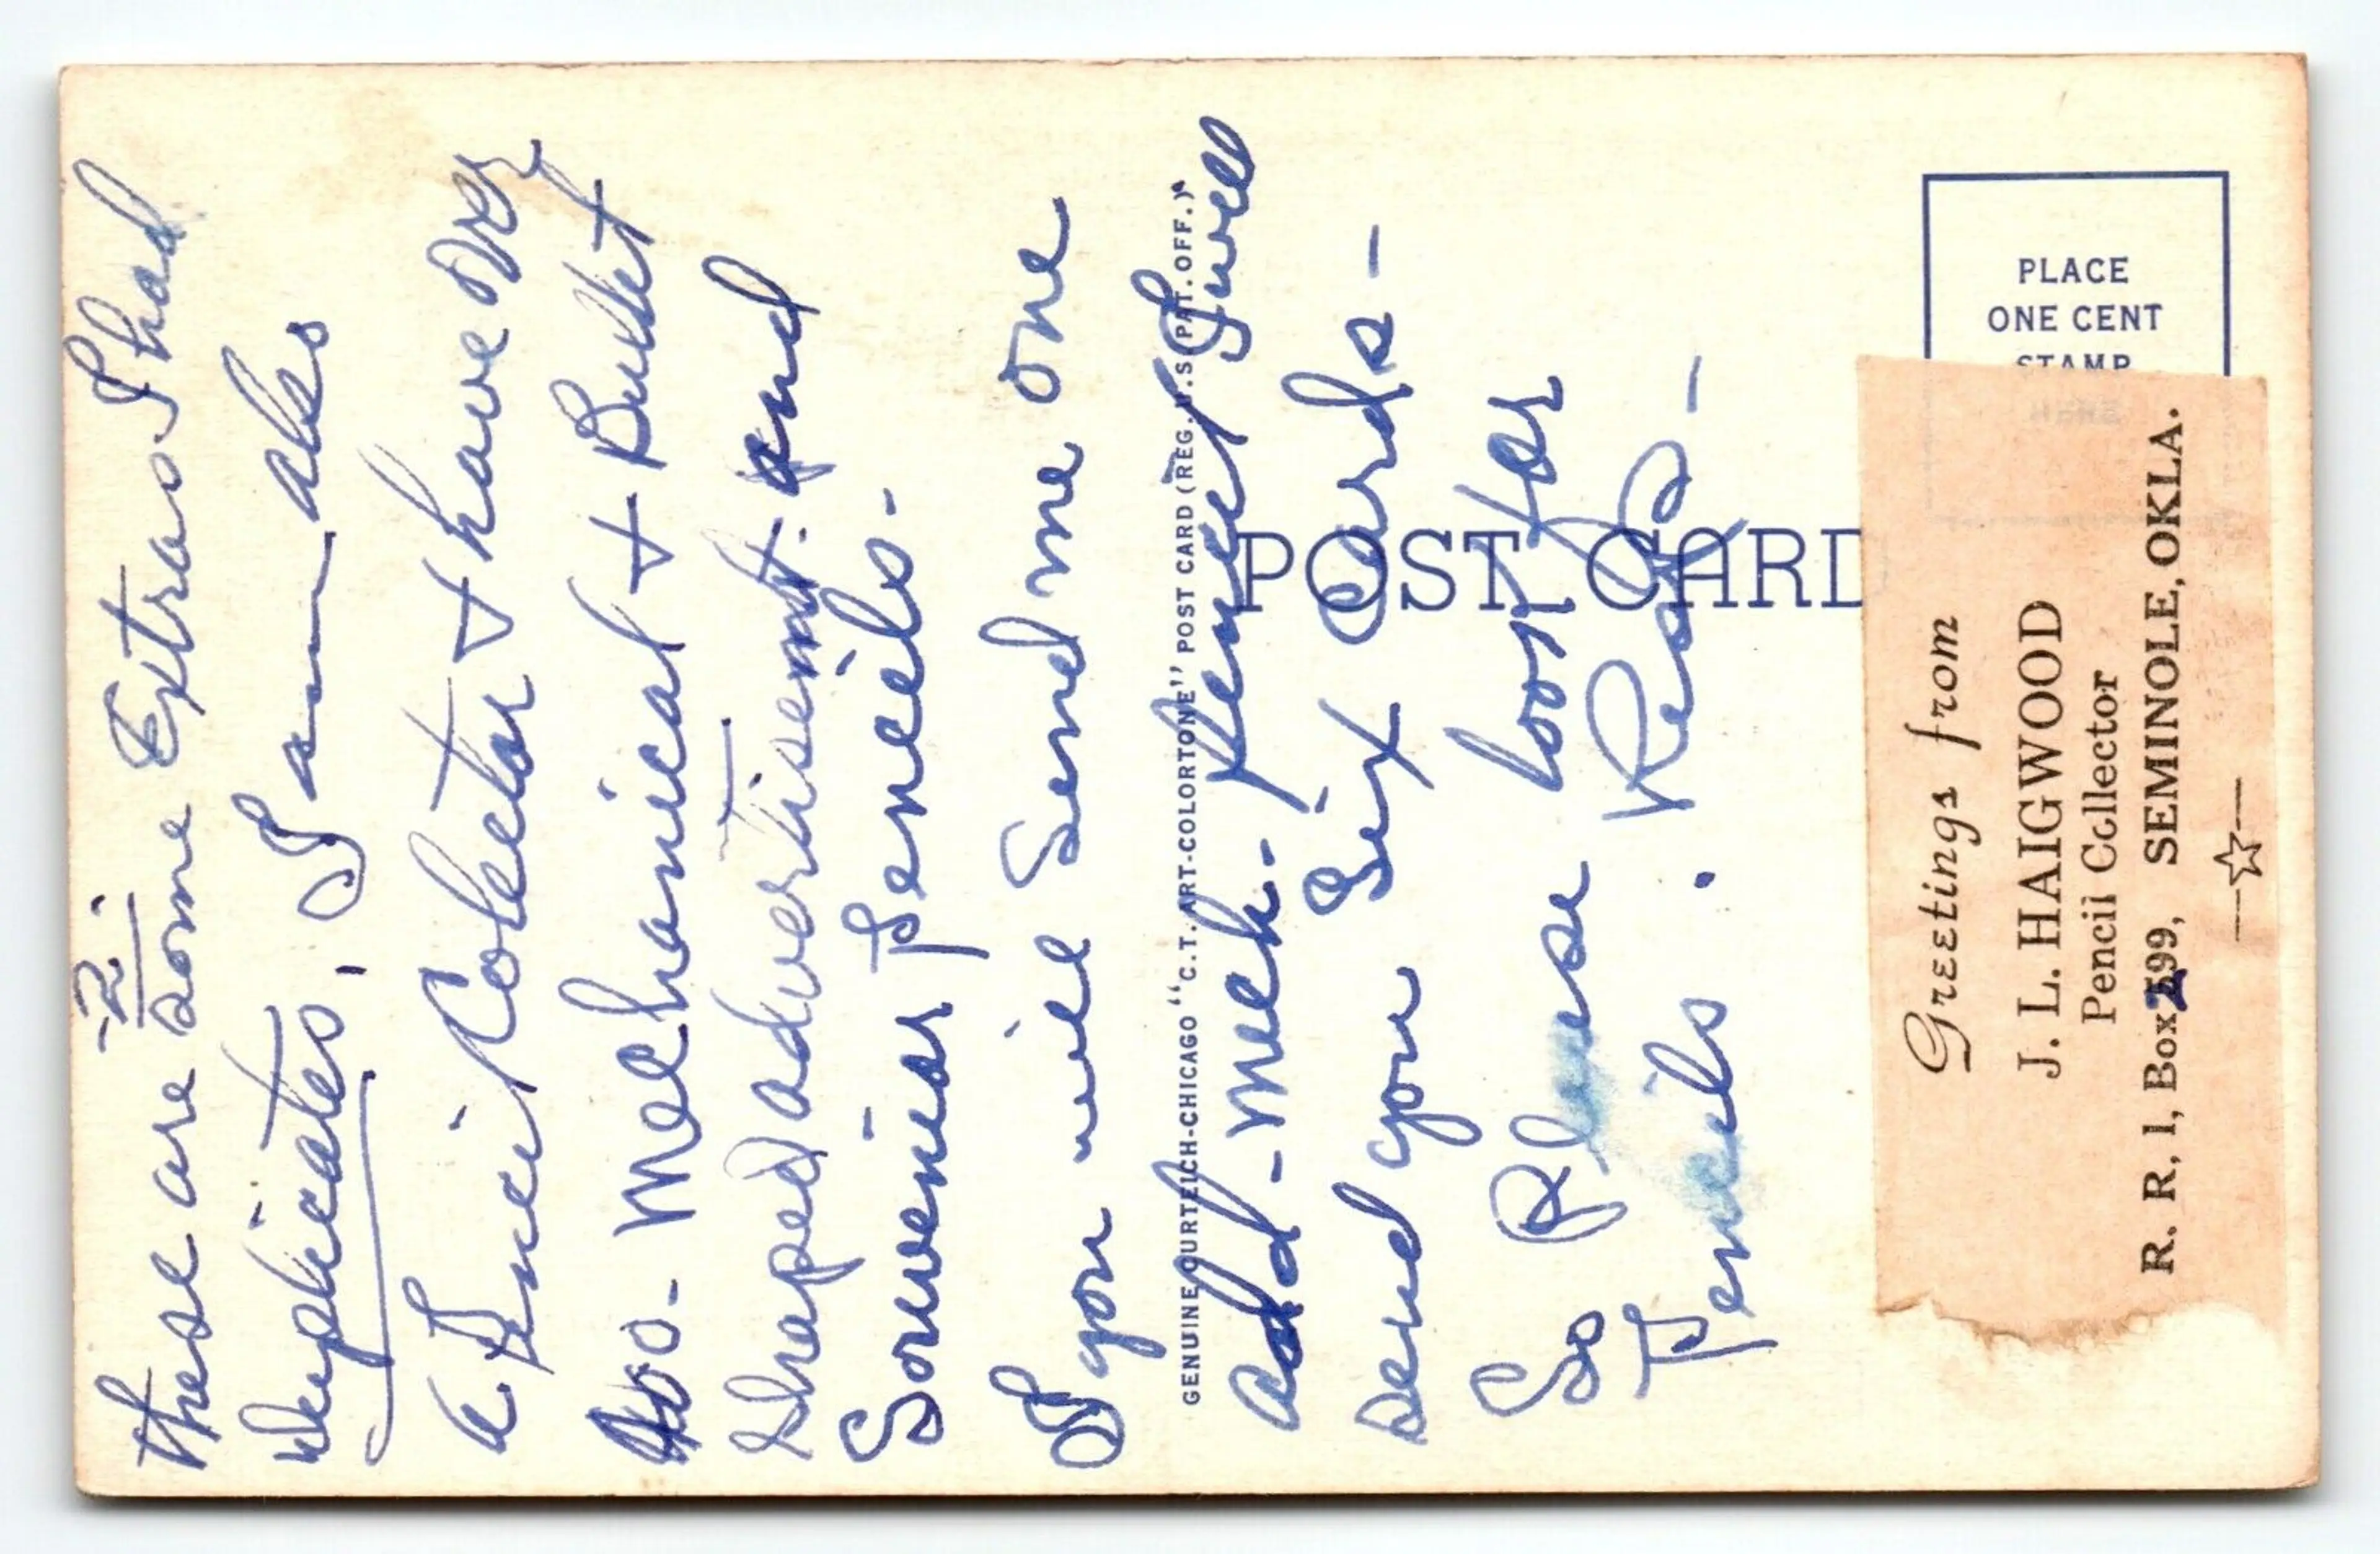 -2-
these are some Extras I had
Duplicates, I am also
a Pencil Colector & have over
- Mechanical & + Bullet
shaped advertisement. and
Souvenier Pencils.
If you will Send me one
add - mech. Pencil I will
send you Six Cards -
So Please look for
Pencils.
GENUINE CURTEICH-CHICAGO "C.T. ART-COLORTONE" POST CARD (REG. U.S. PAT. OFF.)
POST CARD
PLACE
ONE CENT
STAMP
HERE
Greetings from
J. L. HAIGWOOD
Pencil Collector
R. R. 1, Box 599, SEMINOLE, OKLA.